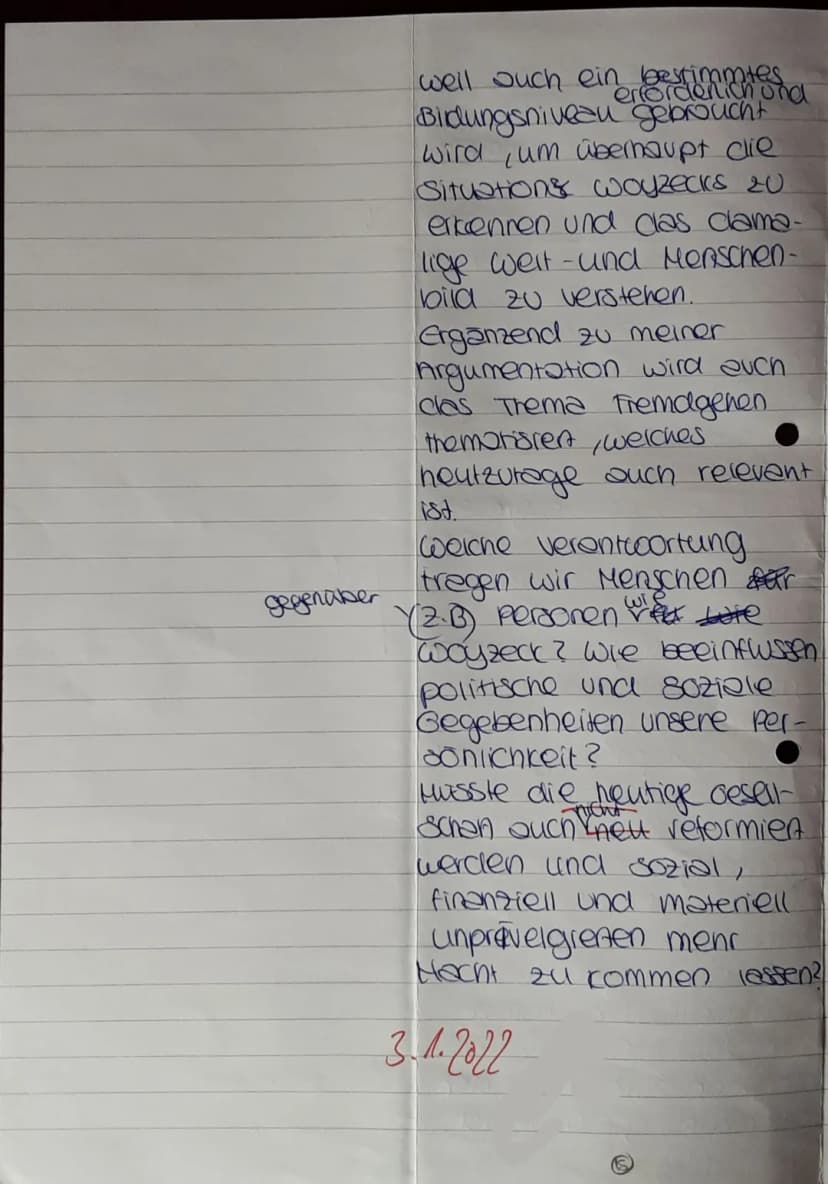 weil auch ein bestimmtes
erforderlich und
Bildungsniveau gebraucht
wird, um überhaupt die
Situation Woyzecks zu
erkennen und das dama-
lige Welt- und Menschen-
bild zu verstehen.
Ergänzend zu meiner
Argumentation wird auch
das Thema Fremdgehen
thematisiert, welches
heutzutage auch relevant
ist.
Welche Verantwoortung
tragen wir Menschen für
gegenüber (z.B) Personen wie
Woyzeck? Wie beeinflussen
politische und soziale
Gegebenheiten unsere Per-
sönlichkeit?
Müsste die heutige Gesell-
nicht
schaft auch neu reformiert
werden und sozial,
finanziell und materiell
unprevelgierten mehr
Macht zu kommen lassen?
3.1.2022